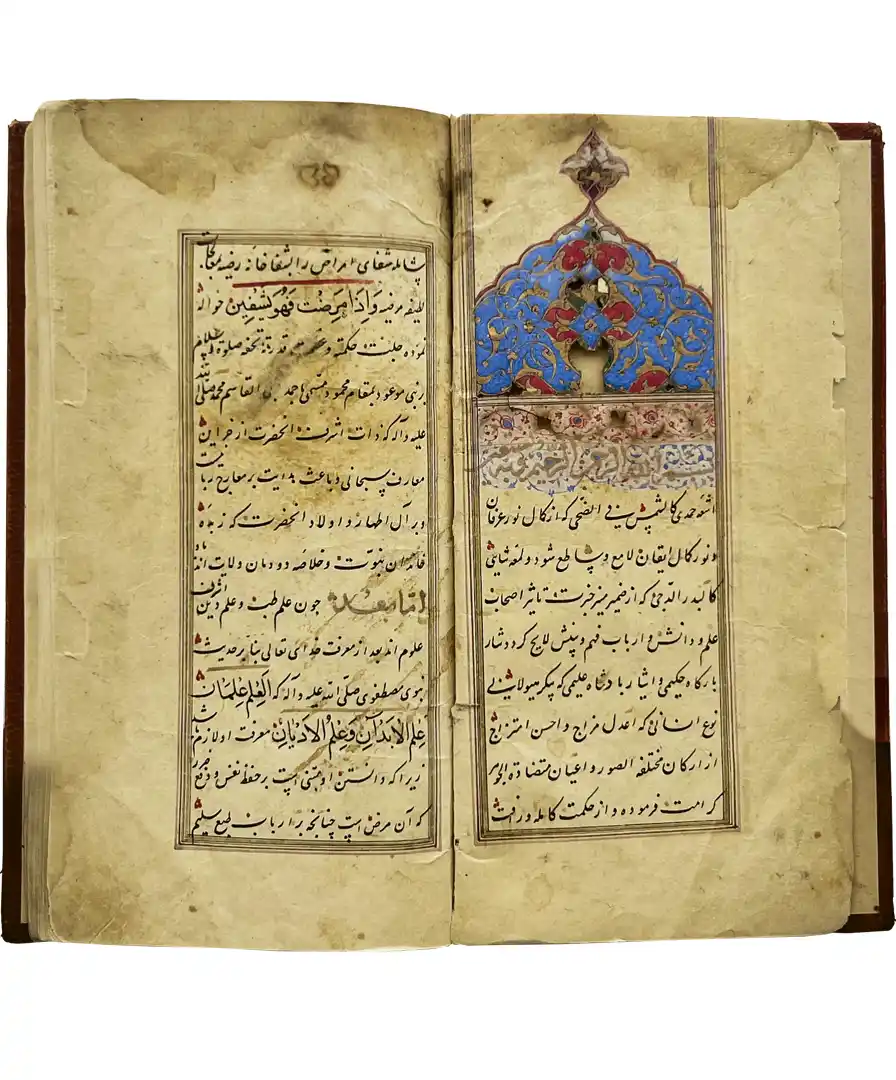 بسم الله الرحمن الرحیم
اشعه حمدی کالشمس فی الضحی که از کمال نور عرفان
و نور کمال ایقان لامع و ساطع شود و لمعه شایی
کالبدر الدجی که از ضمیر منیر خبرت تاثیر اصحاب
علم و دانش و ارباب فهم و بینش لایح کردد نثار
بارکاه حکیمی و ایثار بادشاه علیمی که پیکر هیولایی
نوع انسانی که اعدل مزاج و احسن امتزاج
از ارکان مختلفه الصور و اعیان متضاده الجواهر
کرامت فرموده و از حکمت کامله و رافت
شامله شفای امراض را بشفاخانه
لطیفه مرضیه وَاِذَا مَرِضْتُ فَهُوَ یَشْفِینِ حواله
نموده جلت حکمته و عظمت قدرته تحفه صلوة و سلام
بر نبی موعود بمقام محمود مسمی باحمد ابی القاسم محمد صلی الله
علیه و آله که ذات اشرف آنحضرت از خزاین
معارف سبحانی و باعث هدایت بر معارج ربانیست
و بر آل اطهار و اولاد آنحضرت که زبده
خاندان نبوت و خلاصه دودمان ولایت‌اند
اما بعد جون علم طب و علم دین اشرف
علوم‌اند بعد از معرفت خدای تعالی بنا بر حدیث
نبوی مصطفوی صلی الله علیه و آله که اَلْعِلْمُ عِلْمَانِ
عِلْمُ الاَبْدَانِ وَعِلْمُ الاَدْیَانِ معرفت او لازم
زیرا که دانستن او مبتنی است بر حفظ نفس و دفع ضرر
که آن مرض است چنانچه بر ارباب طبع سلیم